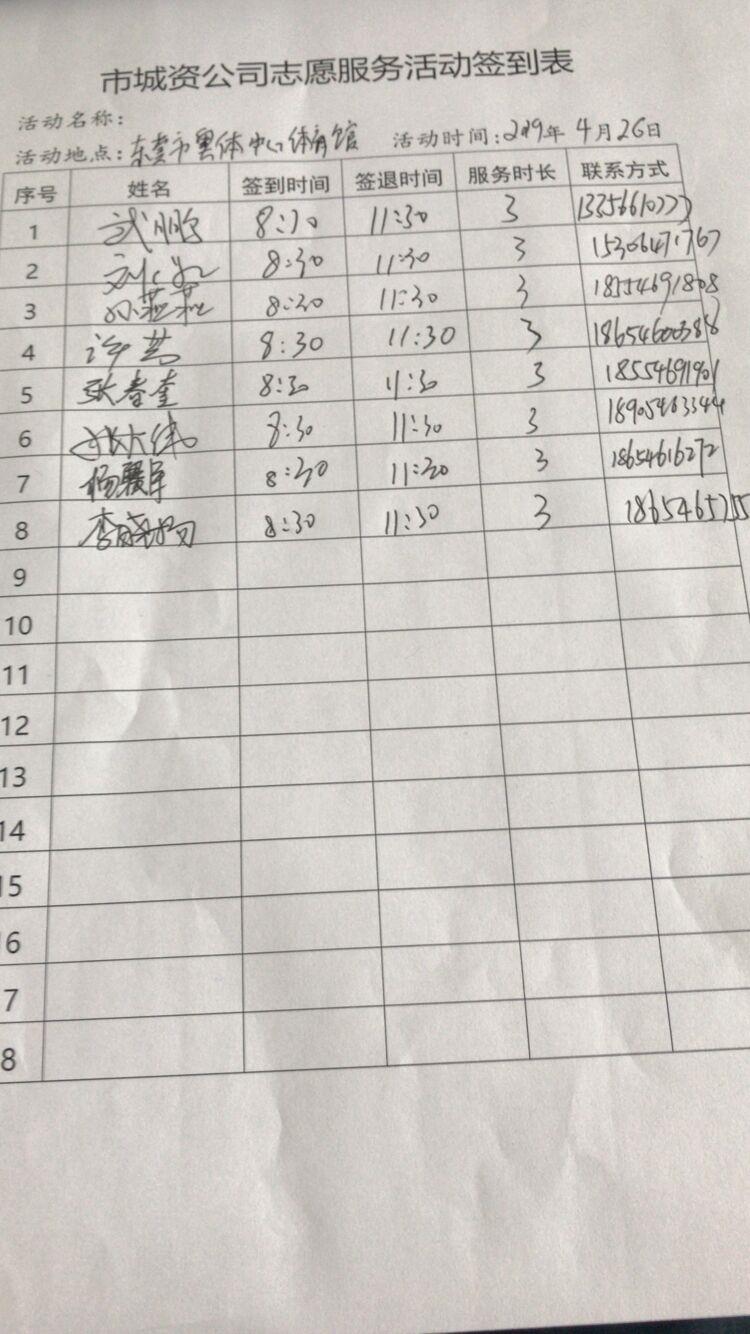 市城资公司志愿服务活动签到表
活动名称：
活动地点：东营市奥体中心体育馆 活动时间：2019年 4月26日
序号 姓名 签到时间 签退时间 服务时长 联系方式
1 武鹏 8:30 11:30 3
2 8:30 11:30 3 15306471767
3 孙燕燕 8:30 11:30 3 18554691808
4 许芸 8:30 11:30 3
5 张春奎 8:30 11:30 3 18554691901
6 张大伟 8:30 11:30 3 18905463344
7 杨骥军 8:30 11:30 3 18654616272
8 8:30 11:30 3
9
10
11
12
13
14
15
6
7
8